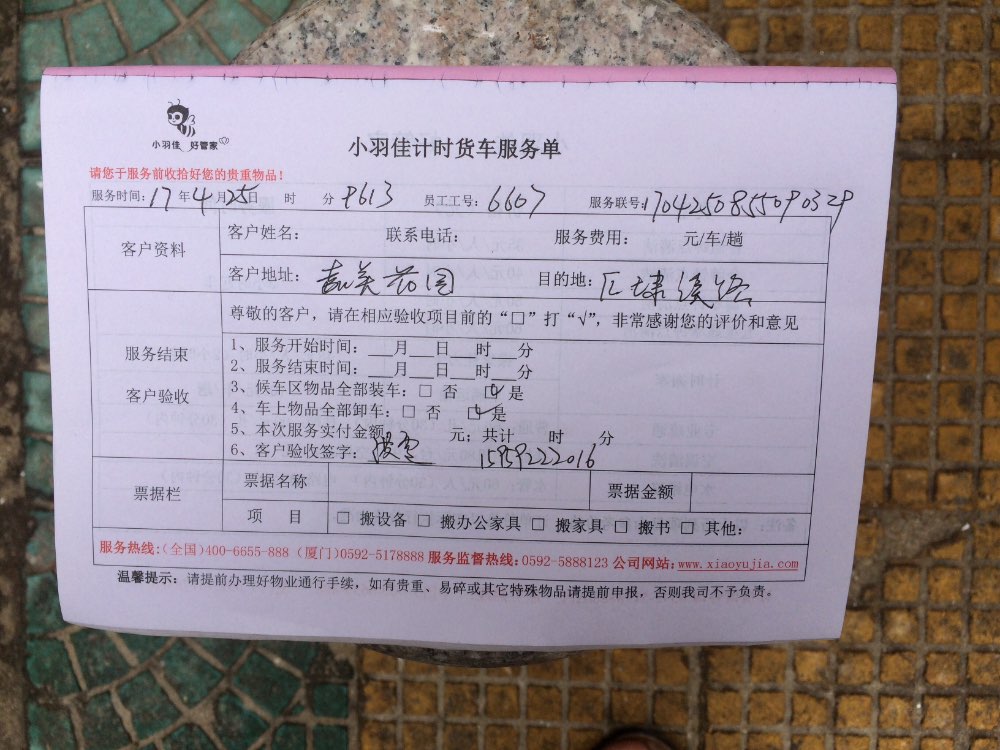 小羽佳 好管家
小羽佳计时货车服务单
请您于服务前收拾好您的贵重物品！
服务时间：17年4月25日 时 分 9613 员工工号：6607 服务联号：1704250855090329
客户资料
客户姓名： 联系电话： 服务费用： 元/车/趟
客户地址：嘉英花园 目的地：
尊敬的客户，请在相应验收项目前的“□”打“√”，非常感谢您的评价和意见
服务结束
客户验收
1、服务开始时间：___月___日___时___分
2、服务结束时间：___月___日___时___分
3、候车区物品全部装车：□ 否 ☑ 是
4、车上物品全部卸车：□ 否 ☑ 是
5、本次服务实付金额 元；共计 时 分
6、客户验收签字： 15959222016
票据栏
票据名称 票据金额
项 目 □ 搬设备 □ 搬办公家具 □ 搬家具 □ 搬书 □ 其他：
服务热线：（全国）400-6655-888（厦门）0592-5178888 服务监督热线：0592-5888123 公司网站：www.xiaoyujia.com
温馨提示：请提前办理好物业通行手续，如有贵重、易碎或其它特殊物品请提前申报，否则我司不予负责。